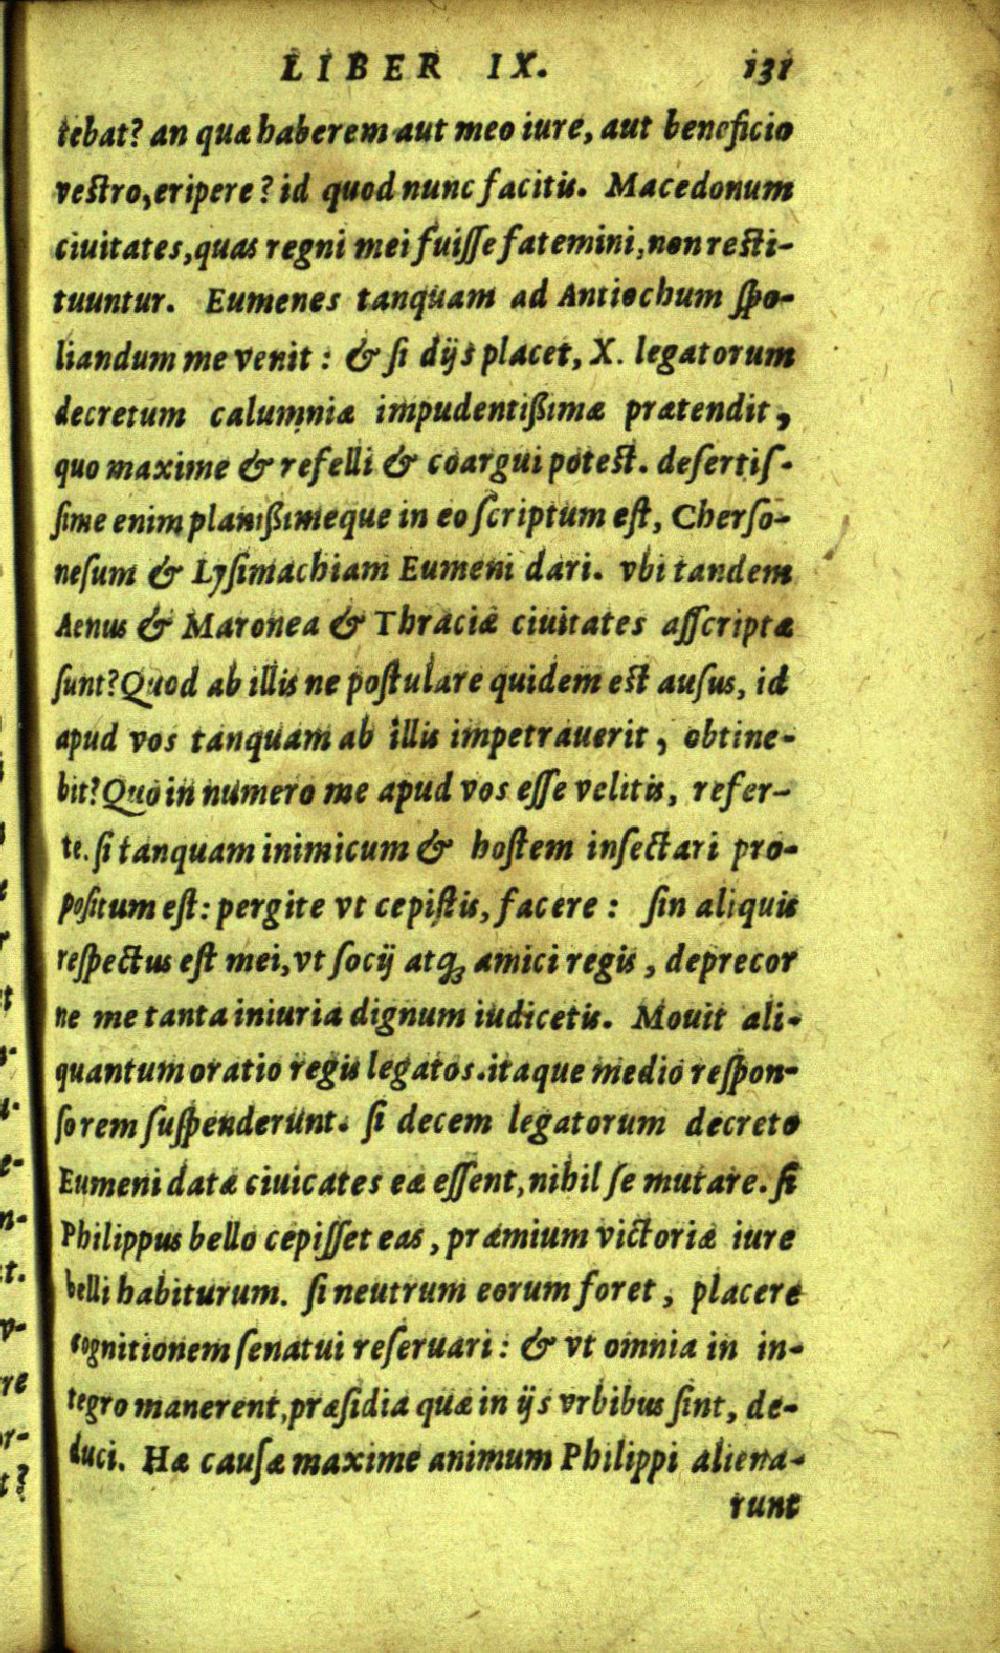 LIBER IX. 131
tebat? an quæ haberem aut meo iure, aut beneficio
vestro, eripere? id quod nunc facitis. Macedonum
ciuitates, quas regni mei fuiſſe fatemini, non resti-
tuuntur. Eumenes tanquam ad Antiochum ſpo-
liandum me venit: & ſi dijs placet, X. legatorum
decretum calumniæ impudentißimæ prætendit,
quo maxime & refelli & coargui potest. deſertiſ-
ſime enim planißimeque in eo ſcriptum eſt, Cherſo-
neſum & Lyſimachiam Eumeni dari. vbi tandem
Aenus & Maronea & Thraciæ ciuitates aſſcriptæ
ſunt? Quod ab illis ne poſtulare quidem est auſus, id
apud vos tanquam ab illis impetrauerit, obtine-
bit? Quo in numero me apud vos eſſe velitis, refer-
te. ſi tanquam inimicum & hoſtem inſectari pro-
poſitum eſt: pergite vt cepiſtis, facere: ſin aliquis
reſpectus eſt mei, vt ſocij atq; amici regis, deprecor
ne me tanta iniuria dignum iudicetis. Mouit ali-
quantum oratio regis legatos. itaque medio reſpon-
ſorem ſuſpenderunt. ſi decem legatorum decreto
Eumeni datæ ciuicates eæ eſſent, nihil ſe mutare. ſi
Philippus bello cepiſſet eas, præmium victoriæ iure
belli habiturum. ſi neutrum eorum foret, placere
cognitionem ſenatui reſeruari: & vt omnia in in-
tegro manerent, præſidia quæ in ijs vrbibus ſint, de-
duci. Hæ cauſæ maxime animum Philippi aliena-
runt